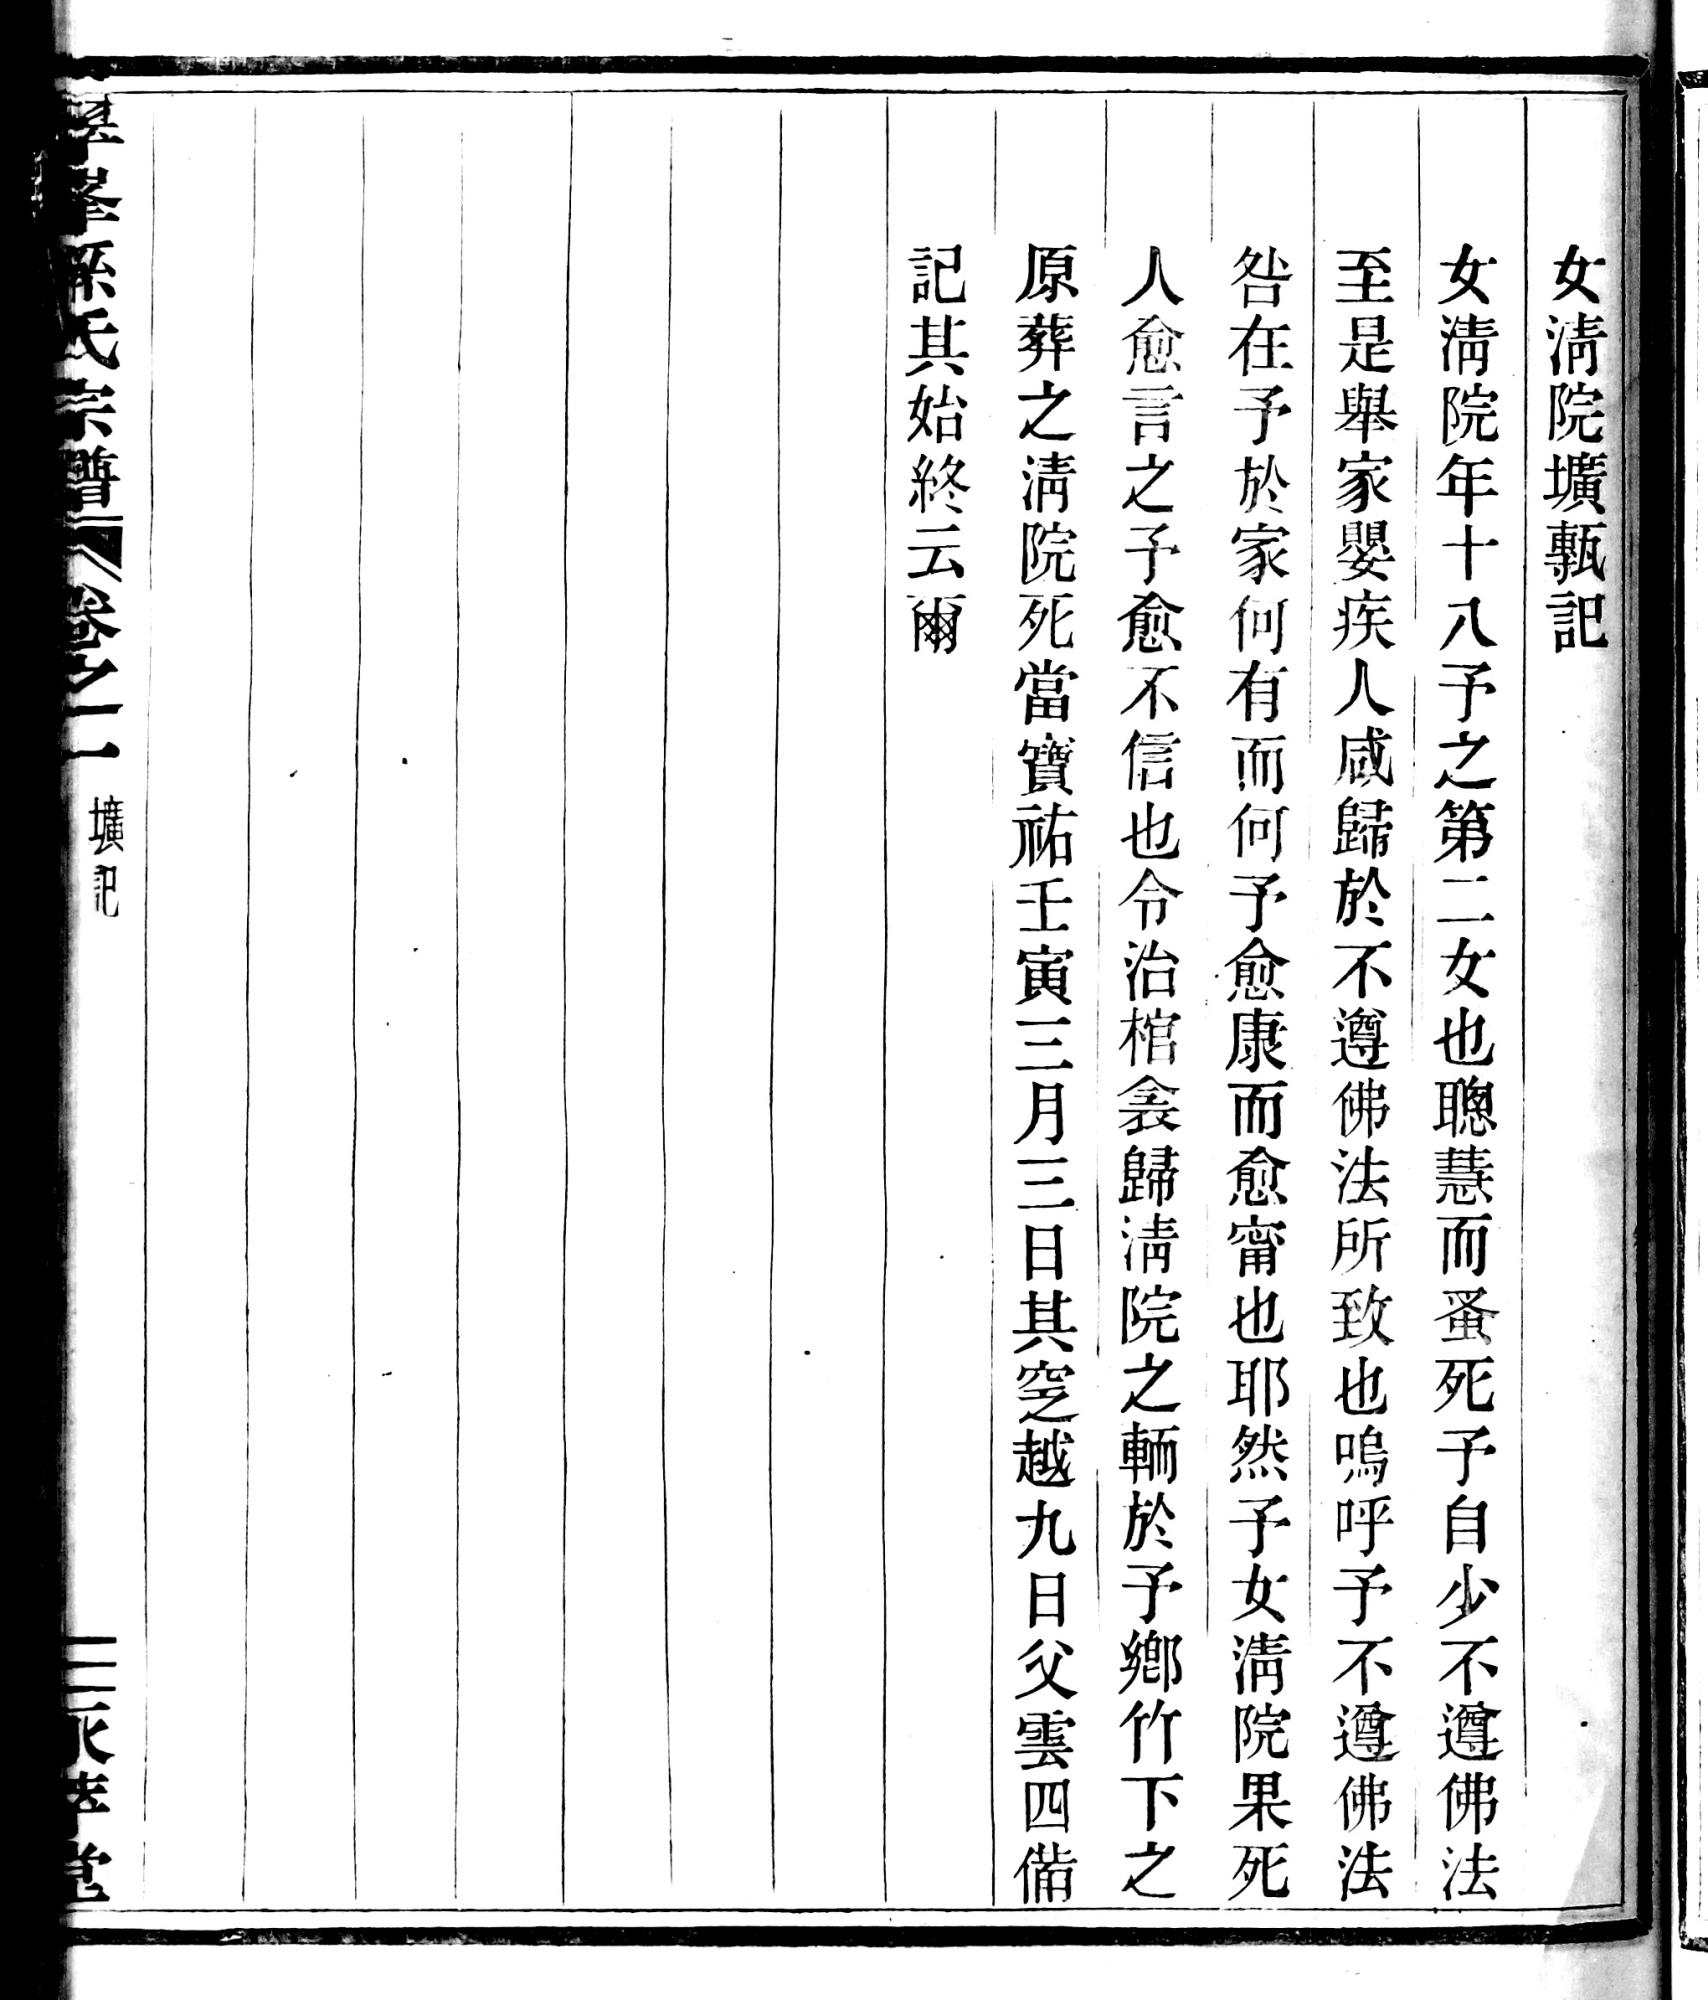 女淸院壙甎記
女淸院年十八予之第二女也聰慧而蚤死予自少不遵佛法
至是舉家嬰疾人咸歸於不遵佛法所致也嗚呼予不遵佛法
咎在予於家何有而何予愈康而愈甯也耶然予女淸院果死
人愈言之予愈不信也令治棺衾歸淸院之輀於予鄉竹下之
原葬之淸院死當寶祐壬寅三月三日其窆越九日父雲四偹
記其始終云爾
峯孫氏宗譜 卷之一 壙記 二 堂